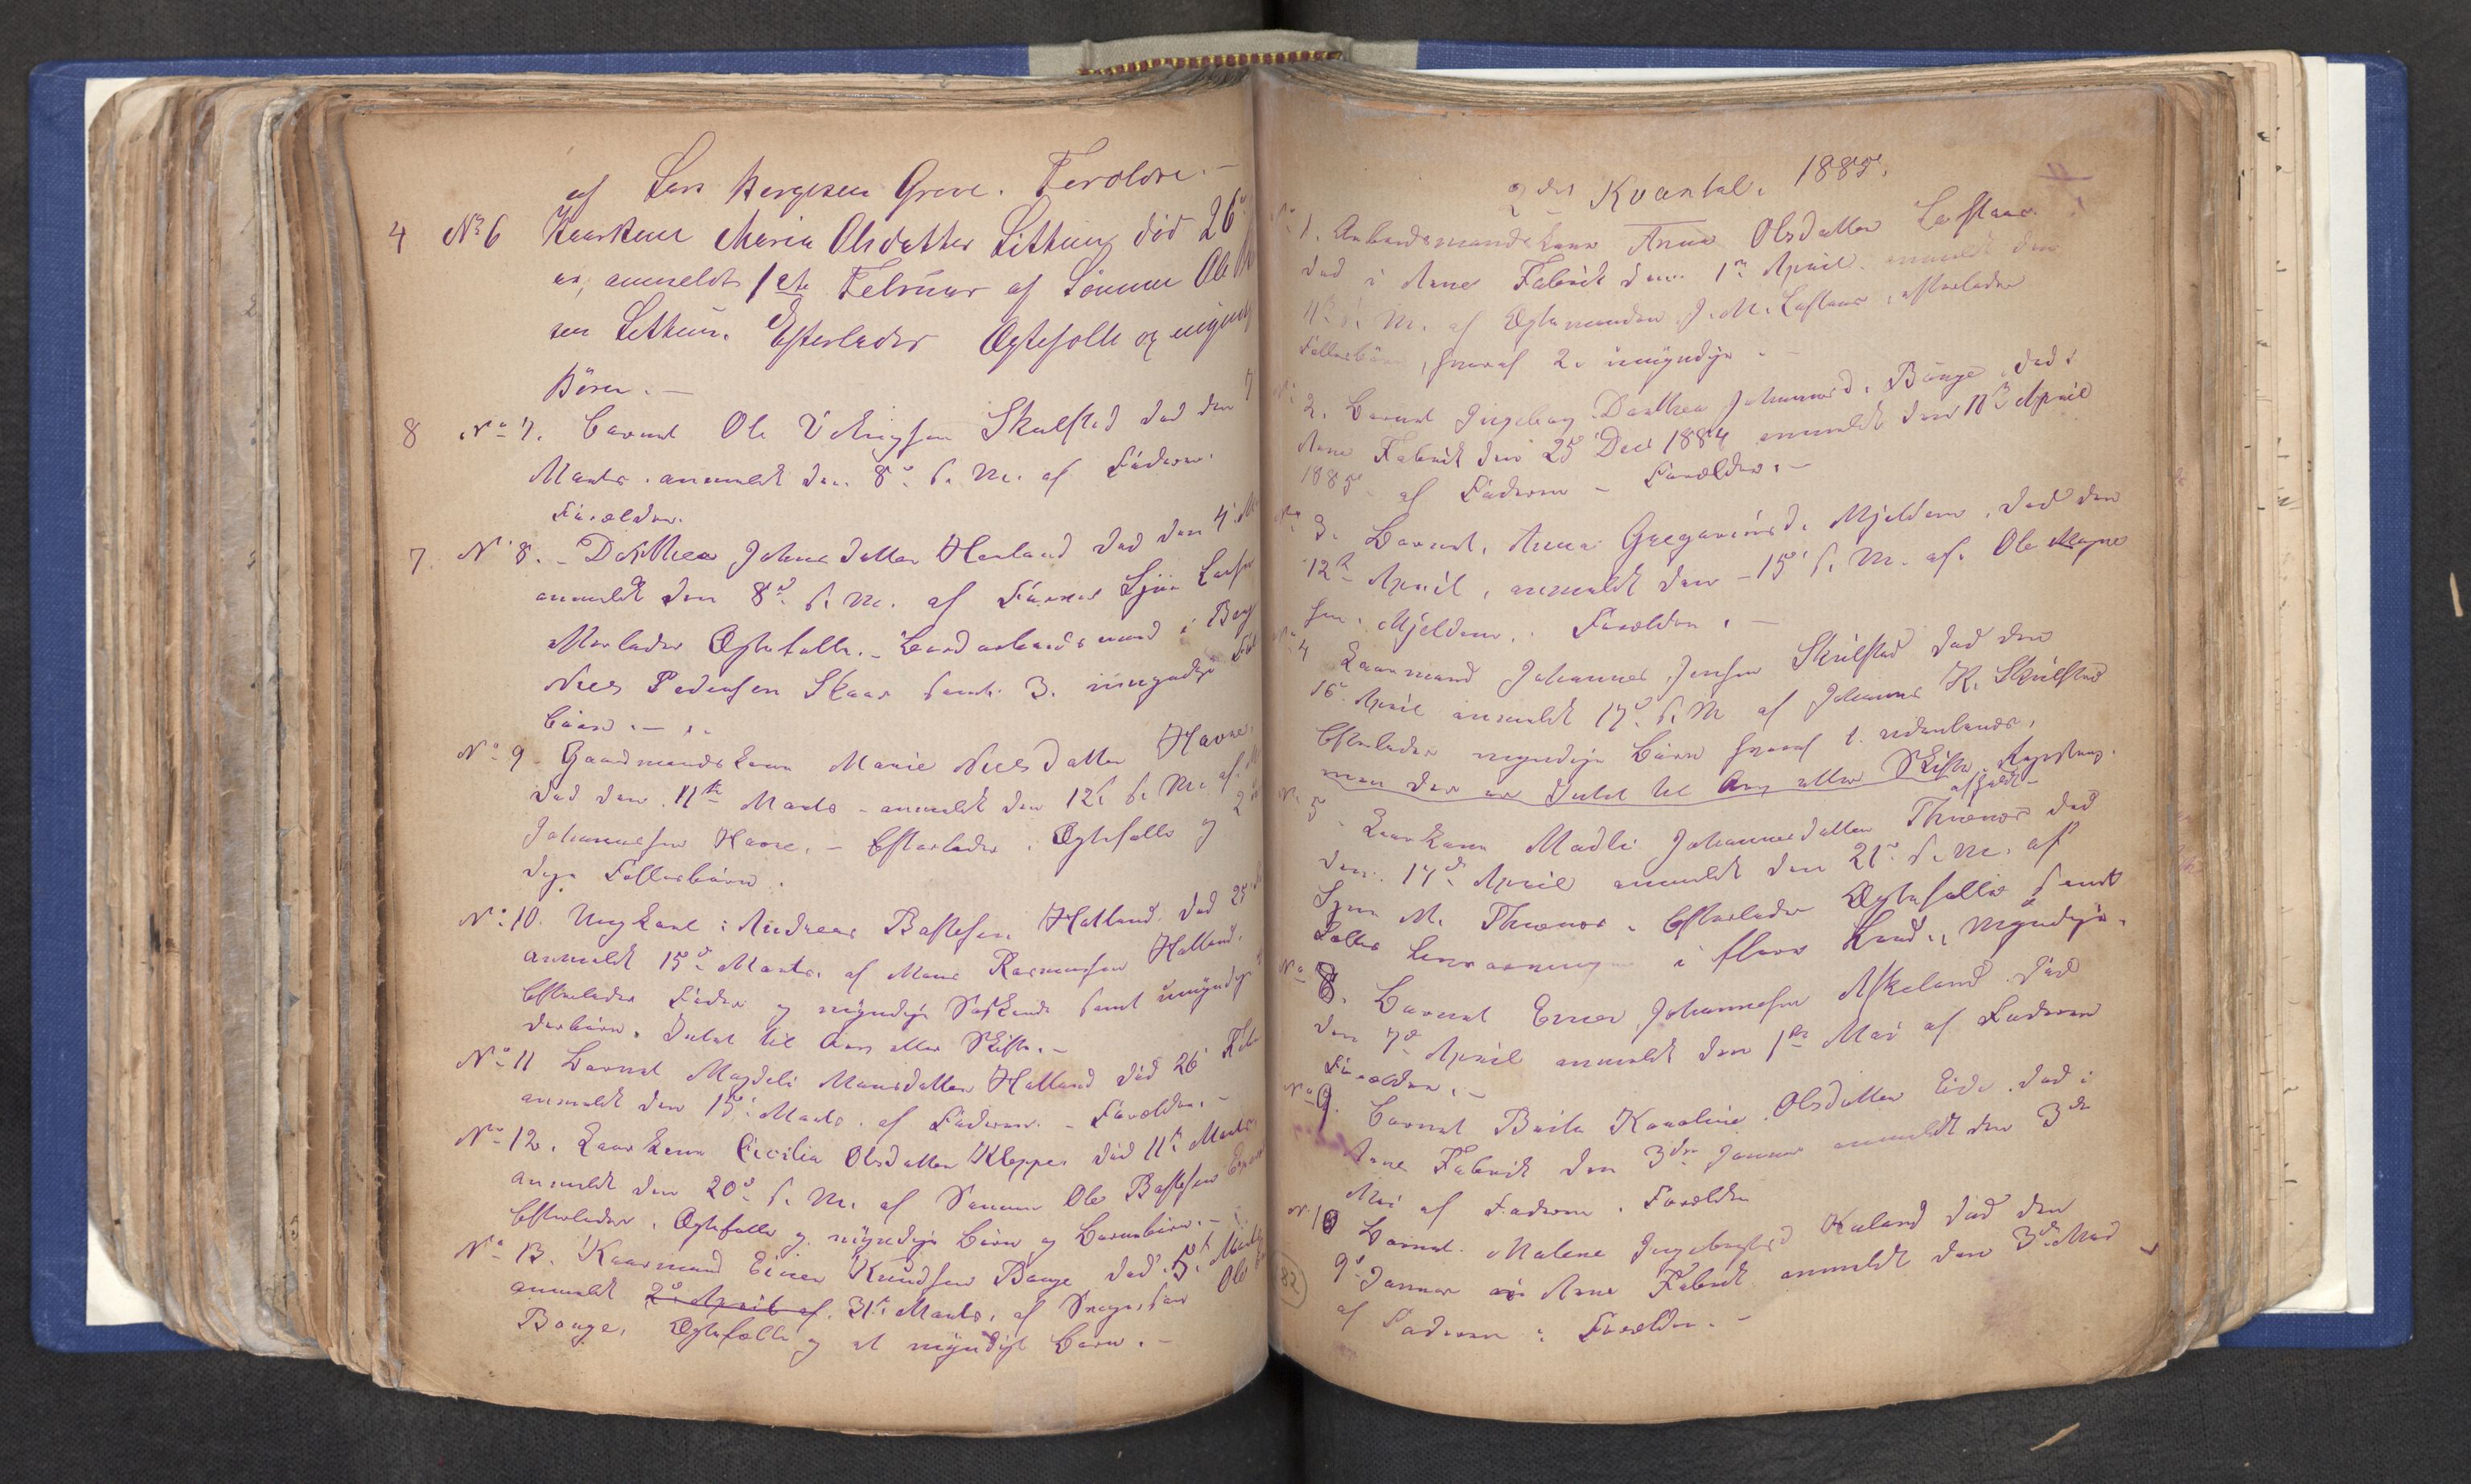 af Lars Børgesen Greve. Foreldre.-
4 No 6 Kaarkone Maria Olsdatter Littun död 26
ar, anmeldt 1ste Februar af Sønnen Ole
sen Littun. Efterlader Ægtefolle og
Börn. -
8 No 7. Barnet Ole Skulstad död den 7
Marts. anmeldt den 8de s. M. af Faderen.
Forældre.
7. No 8. - Dorthea Johansdatter Herland död den 4
anmeldt den 8de s. M. af
efterlader Ægtefolle. -
Niels Pedersen Skaar samt 3. umyndige
börn. -
No 9 Gaardmandskone Marie Nielsdatter Havre.
död den 11te Marts - anmeldt den 12te s. M. af
Johannessen Havre. - Efterlader Ægtefolle og 2
dige Fellesbörn.
No 10. Ungkarl: Andreas Hatland. död 25
anmeldt 15de Marts. af Mons Rasmussen Hatland.
Efterlader Fader og myndige Søskende samt umyndige
No 11 Barnet Magdeli Monsdatter Hatland död 26 Feb
anmeldt den 15de Marts. af Faderen. - Forældre. -
No 12. Kaarkone Cicilia Olsdatter Kleppe. död 11te Marts.
anmeldt den 20de s. M. af Sønnen Ole
Efterlader. Ægtefolle og myndige börn og Barnebörn. -
No 13. Kaarmand Einer Knudsen Bonge död. 5te Marts
anmeldt 2de April af. 31te Marts. af Ole
Bonge. Ægtefolle og et myndigt barn. -
2det Kvartal. 1885.
No 1. Arbeidsmandskone Anna Olsdatter Loftaas.
död i Arne Fabrik den 1ste April. anmeldt den
11te s. M. af Ægtemanden J. M. Loftaas, efterlader
Fellesbörn, hvoraf 2. umyndige. -
No 2. Barnet Ingeborg Dorthea Johannesd. Bonge, död i
Arne Fabrik den 25de Dec 1884 anmeldt den 11te April
1885 - af Faderen - Forældre. -
No 3. Barnet, Anna Gregoriusd. Mjeldem, död den
12te April, anmeldt den 15de s. M. af. Ole Magne
sen. Mjeldem. Forældre. -
No 4 Kaarmand Johannes Jensen Skulstad död den
16de April anmeldt 17de s. M af Johannes K. Skulstad
Efterlader myndige börn hvoraf 1. udenlands.
men der er Intet til Arv eller Skifte.
No 5. Kaarkone Madli Johannesdatter död
den. 17de April anmeldt den 21de s. M. af
M. Efterlader Ægtefolle samt
Felles i flere myndige.
No 8. Barnet Einer Johannesen Askeland. död
den 7de April anmeldt den 1ste Mai af Faderen
Forældre. -
No 9. Barnet Berta Karoline Olsdatter Eide. död i
Arne Fabrik den 3die Januar anmeldt den 3die
Mai af Faderen. Forældre
No 10 Barnet. Malene Ingebrigtsd död den
9de Januar i Arne Fabrik anmeldt den 3die Mai
82
af Faderen: Forældre. -